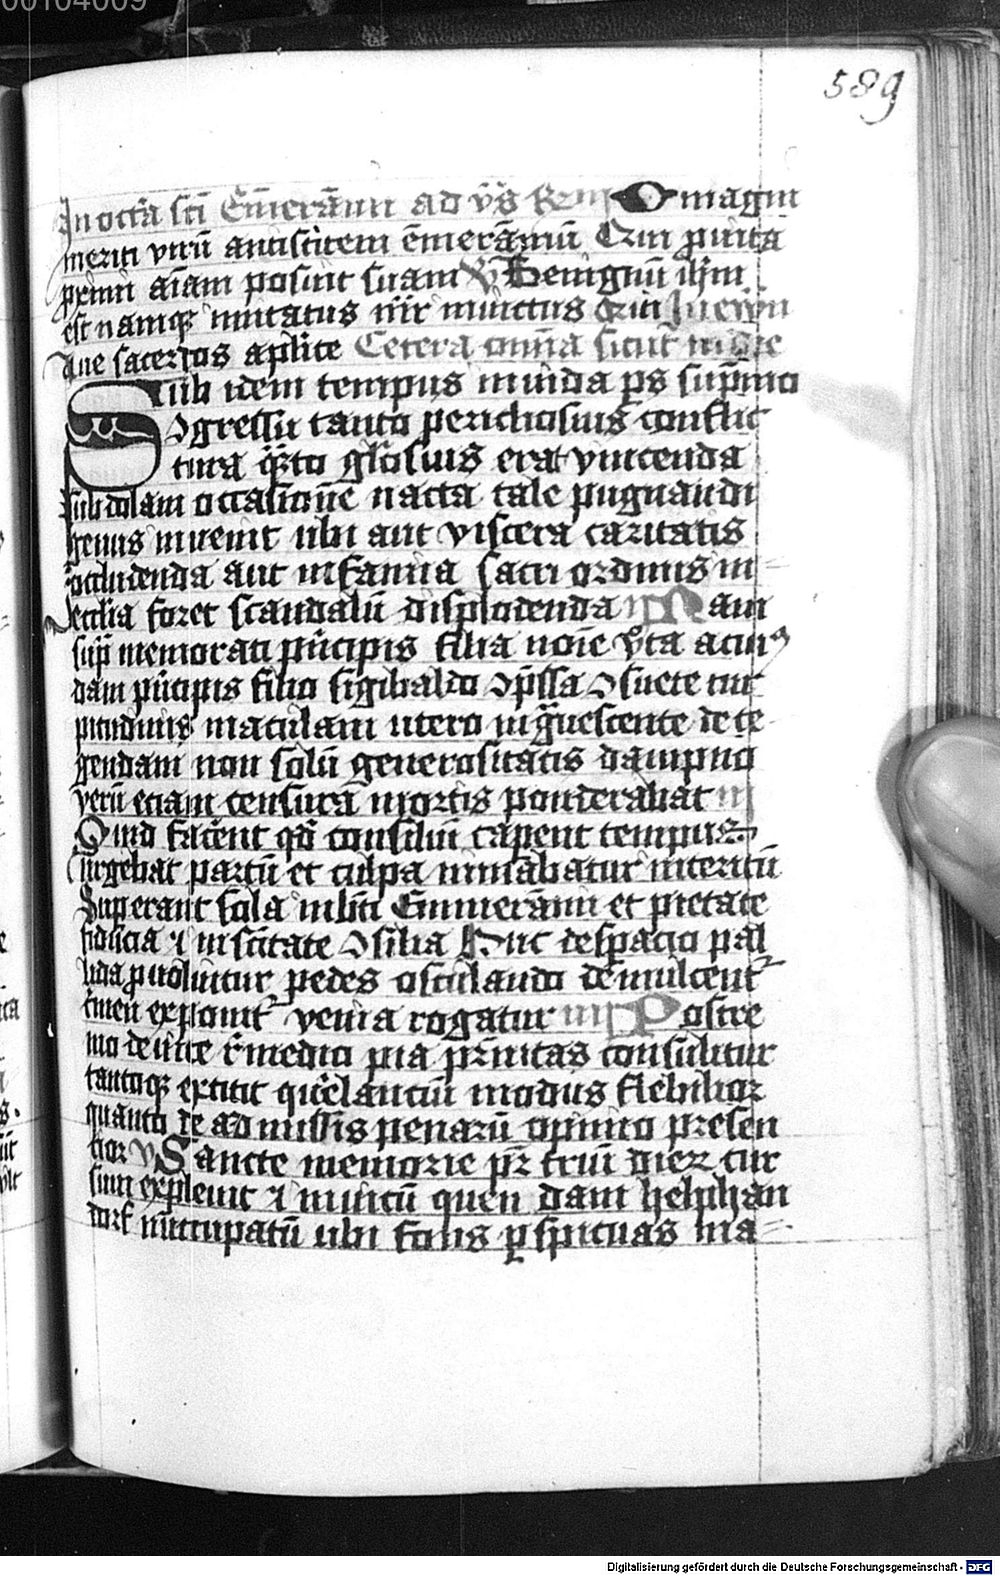 00104009
589
In octa sci Emerāmi ad vs̄ R O magni
meriti virū antistitem emerāmū Qui p̱uita
pximi aīam posuit suam V Benignū ihm
est namqꝫ imitatus nr̄ inuictus Qui In ewn
Aue sacerdos aplice Cetera omīa sicut
Sub idem tempus inuida ps supīno
ɔgressu tanto periculosius conflic
tura qͣto glosius erat vincenda
subdolam occasionē nacta tale pugnandi
genus inuenit ubi aut viscera caritatis
occludenda aut infamia sacri ordinis in
ecclia foret scandalū displodenda Nam
sup̄ memorati pͥncipis filia noīe vta acuiꝰ
dam pͥncipis filio sigibaldo ɔpssa ɔsuete tur
pitudinis maculam utero ingͣuescente dete
gendam non solū generositatis dampno
verū etiam censurā mortis ponderabat
Quid facerent qd̄ consiliū caperent tempus
urgebat partū et culpa minabatur interitū
Superant sola inbn̄ti Emmerāmi et pietate
fiducia ⁊ in scītate ɔsilia Huc despacio pal
lida p̱uoluitur pedes osculando demulcent᷑
cͥmen exponit᷑ venia rogatur iii Postre
mo deuite r̄medio pia pr̄nitas consulitur
tantoqꝫ extitit querelanciū modus flebilior
quanto de admissis penarū opinio presen
tior V Sancte memorie pr̄ triū dieꝝ cur
sum expleuit ⁊ inuicū quen dam helphan
dorf nūccupatū ubi fons ꝑspicuas ma
Digitalisierung gefördert durch die Deutsche Forschungsgemeinschaft - DFG